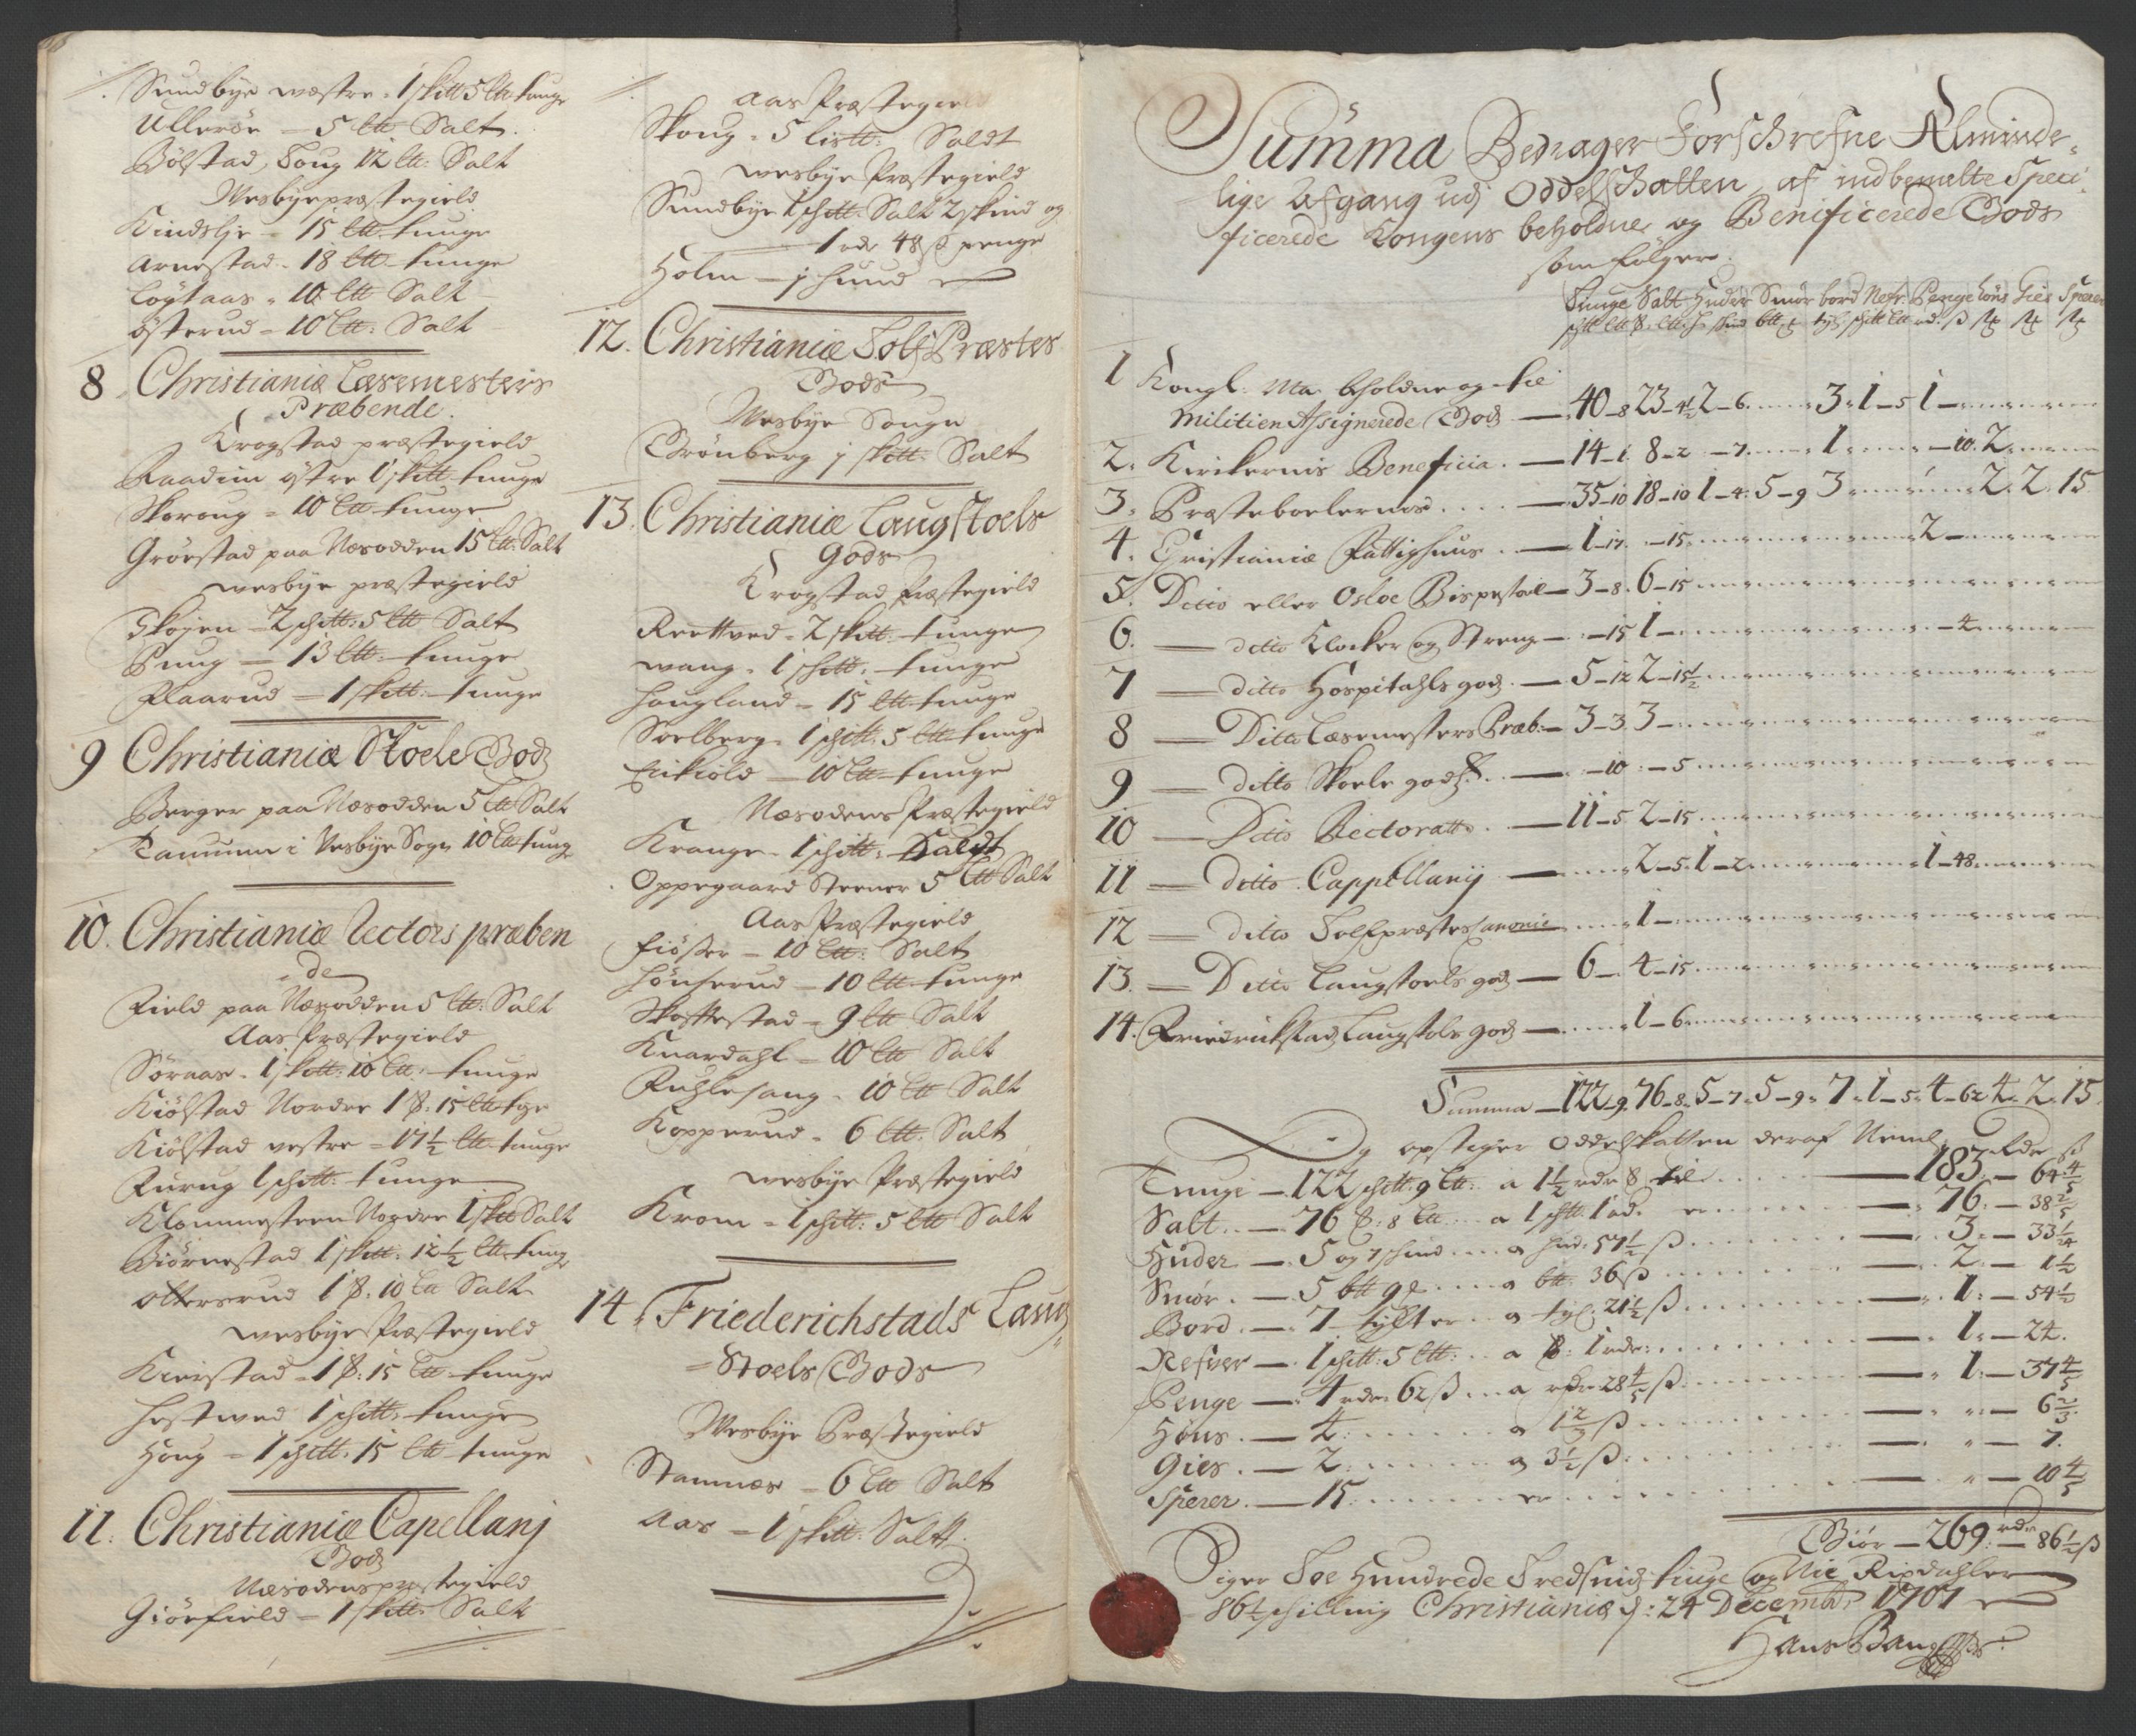 Sundbye westre - 1 sk℔ 5 l℔ tunge
Ullerøe — 5 l℔ Salt.
Bølstad, Soug 12 l℔: Salt
Wesbyepræstegield
Kindslje - 15 l℔ tunge
Arnestad - 18 l℔ tunge
Løgtaas - 10 l℔ Salt
Østerud - 10 l℔: Salt
8 Christianiæ Læsemesters
Præbende.
Krogstad præstegield
Raadim østre 1 sk℔ tunge
Skoroug = 10 l℔ tunge
Grørstad paa Næsodden 15 l℔: Salt
wesbye præstegield
Skojen - 2 sch℔: 5 l℔ Salt
Pung — 13 l℔: tunge
Flaarud — 1 sk℔: tunge
9 Christianiæ Skoele Godz
Berger paa Næsodden 5 l℔ Salt
Tanumn i Vesbye Sogn 10 l℔ tung
10. Christianiæ Rectors præben
de
Field paa Næsodden 5 l℔: Salt
Aas Præstegield
Søraas - 1 sk℔: 10 l℔: tunge
Kiølstad Nordre 1 ß: 15 l℔ tge
Kiølstad vestre = 17½ l℔ tunge
Furug 1 sch℔: tunge
Klommesteen Nordre 1 sk℔ Salt
Biørnestad 1 sk℔: 12½ l℔ tung
Ottersrud 1 ß: 10 l℔ Salt
wesbye Præstegield
Kierstad - 1 ß: 15 l℔ tunge
Hestwed 1 sch℔: tunge
Houg = 1 sch℔: 15 l℔ tunge
11. Christianiæ Capellanj
Godz
Næsodens præstegield
Giørfield — 1 sk℔: Salt
Aas Præstegield
Skoug - 5 lis℔: Saldt
wesbye Præstegield
Sundbye 1 sch℔: Salt 2 skind og
1 rdr 48 ß penge
Holm — j hund
12. Christianiæ Solf Præstes
Gods
Wesbye Sougn
Grønberg j sk℔: Salt
13. Christianiæ Laugstoels
Gods
Krogstad Præstegield
Reettved - 2 sk℔: tunge
wang - 1 sch℔: tunge
Hougland - 15 l℔ tunge
Soelberg - 1 sch℔: 5 l℔ tunge
Eikiold — 10 l℔ tunge
Næsodens Præstegield
Krange - 1 sch℔: Saldt
Oppegaard Steener 5 l℔ Salt
Aas Præstegield
Fiøsser — 10 l℔: Salt
Hønserud — 10 l℔ tunge
Skoftestad = 9 l℔ Salt
Knardahl — 10 l℔ Salt
Fuhlesang - 10 l℔ Salt
Kopperud - 6 l℔: Salt
wesbye Præstegield
Krom = 1 sch℔: 5 l℔ Salt
14. Friederichstads Laug
Stoels Gods
Wesbye Præstegield
Stamnæs — 6 l℔ Salt
Aas — 1 sk℔: Saltt
Summa Bedrager Forschrefne Alminde-
lige Afgang udj Oddelschatten, af indbemelte Speci-
ficerede Kongens beholdne og Benificerede Gods
som følger.
Tunge Salt Huder Smør bord Nefr. Penge Høns Gies Sperer
1 Kongl. Ma. beholdne og til
Militien Assignerede Godz — 40-8 23-4½ 2-6 3-1-5 1
2. Kirkernis Beneficia. — 14-1. 8-2 -7. 1 -10. 2
3. Præsteboelernes. — 35-10 18-10 1-4. 5-9 3 2. 2. 15
4. Christianiæ Fattighuus. — 1-17. -15 2
5. Ditto eller Osloe Bispestoel — 3-8. 6-15
6. — ditto Klocker og Streng — -15 1 -4
7 — ditto Hospitahls godz. — 5-12 2-15½
8 — Ditto Læsemesters Præb: — 3-3. 3
9 — ditto Skoele godz. — -10 -5
10 — Ditto Rectorats. — 11-5 2-15
11 — ditto. Cappellanij — 2-5. 1-2 1-48
12 — ditto Solfpræstes Canonie 1
13. — Ditto Laugstoels godz — 6 4-15
14. Friedrickstads Laugstols godz — 1-6
Summa — 122-9. 76-8. 5-7. 5-9. 7. 1-5. 4-62 4. 2. 15.
Og opstiger Oddelskatten deraf Neml: Rdr ß
Tunge — 122 sch℔: 9 l℔: a 1½ rdr — 183 — 64⅘
Salt. — 76 ß: 8 l℔ a 1 sch℔ 1 rd. — 76. — 38⅖
Huder — 5 og 7 schind a hud. 57½ ß — 3 — 33 1/24
Smør. — 5 b℔ 9 a b℔ 36 ß — 2. — 1½
Bord. — 7 tylfter a tyl: 21½ ß — 1. — 54½
Nefver — 1 sch℔: 5 l℔: a ß: 1 rdr: — 1. — 24.
Penge — 4 rdr. 62 ß a rdr 28⅘ ß — 1. — 37⅘
Høns. — 4. a 1⅔ ß — 6⅔
Gies. — 2. a 3½ ß — 7.
Sperer. — 15. — 10⅘
Giør — 269 rdr — 86½ ß
Siger Toe Hundrede Tredsinds tiuge og Nie Rixdahler
86½ schilling Christianiæ d: 24 Decembr 1707
Hans Bang